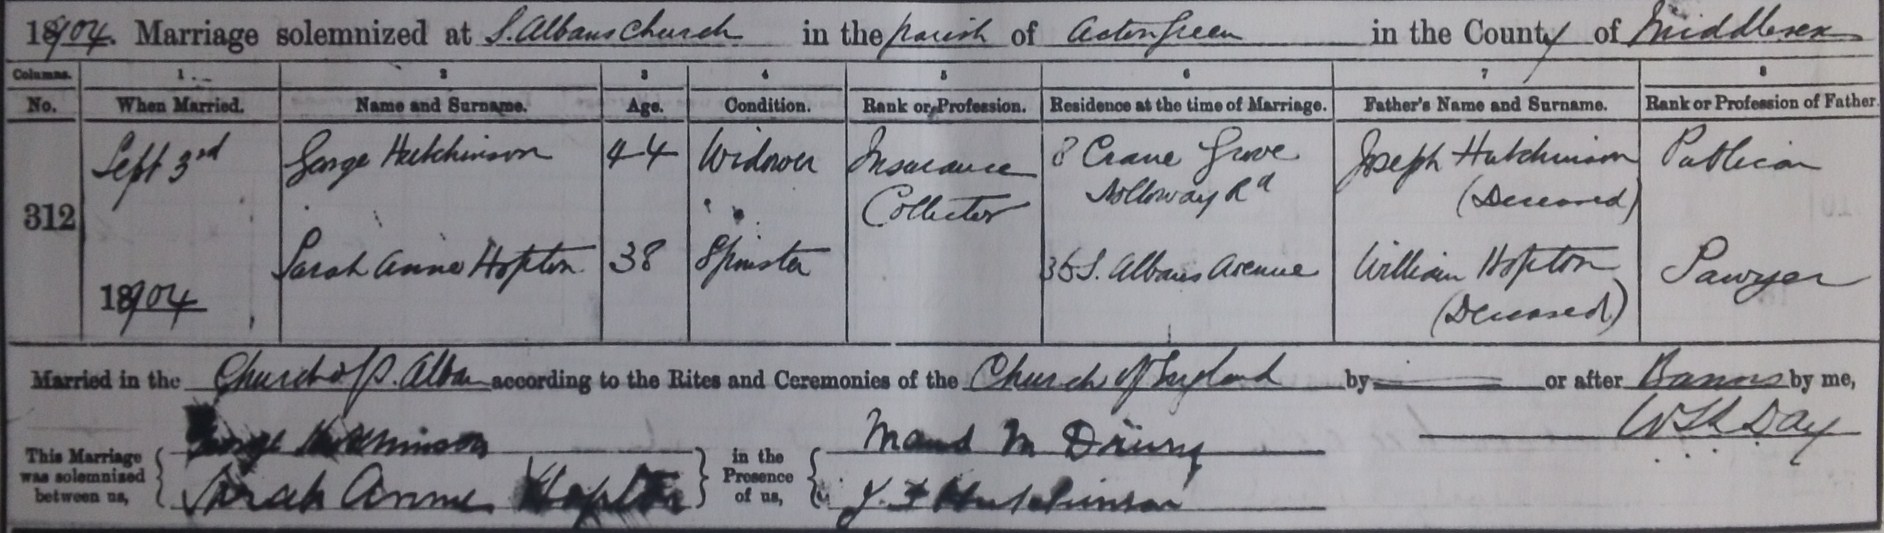 1904. Marriage solemnized at S. Albans Church in the parish of Acton Green in the County of Middlesex
Columns. 1 2 3 4 5 6 7 8
No. When Married. Name and Surname. Age. Condition. Rank or Profession. Residence at the time of Marriage. Father's Name and Surname. Rank or Profession of Father.
Sept 3rd George Hutchinson 44 Widower Insurance 8 Crane Grove Joseph Hutchinson Publican
Collector Holloway Rd (Deceased)
312
Sarah Anne Hopton 38 Spinster 36 S. Albans Avenue William Hopton Sawyer
1904 (Deceased)
Married in the Church of S. Alban according to the Rites and Ceremonies of the Church of England by or after Banns by me,
George Hutchinson Maud M Drury Day
This Marriage was solemnized between us, in the Presence of us,
Sarah Anne Hopton J. F Hutchinson